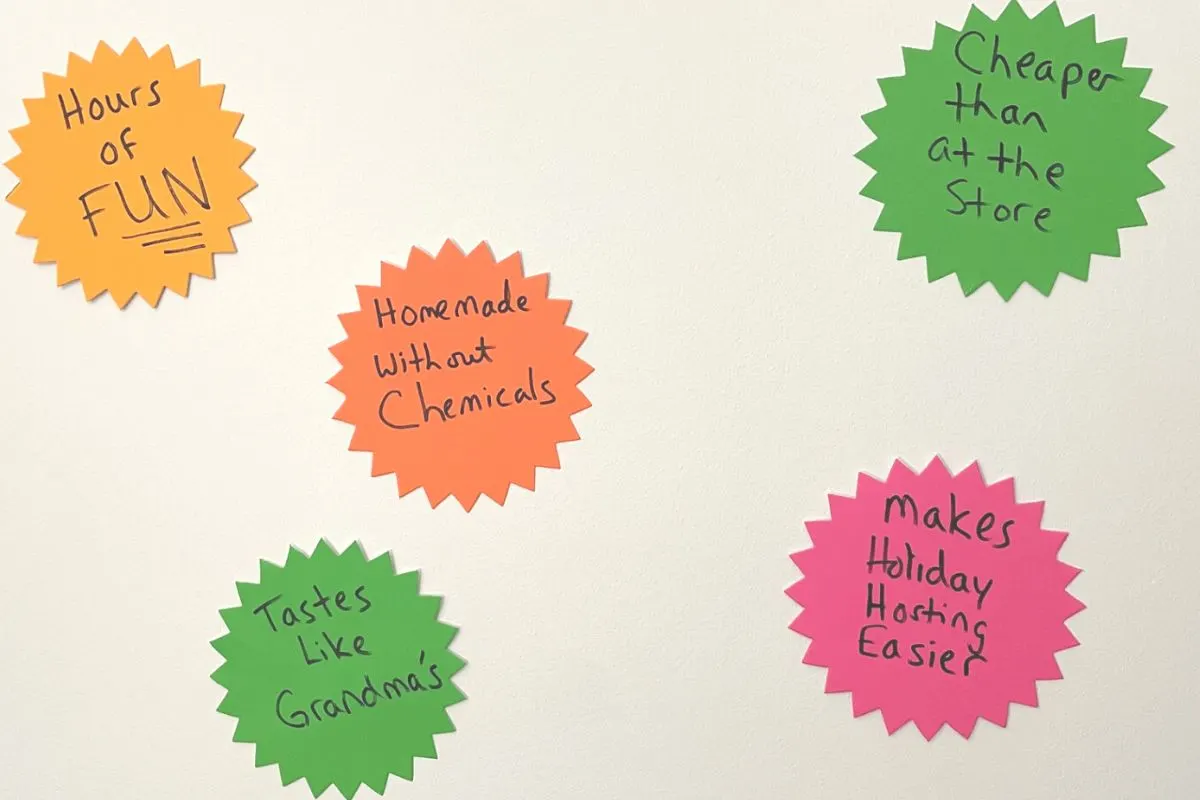 Hours
of
FUN
Cheaper
than
at the
Store
Homemade
Without
Chemicals
Makes
Holiday
Hosting
Easier
Tastes
Like
Grandma's